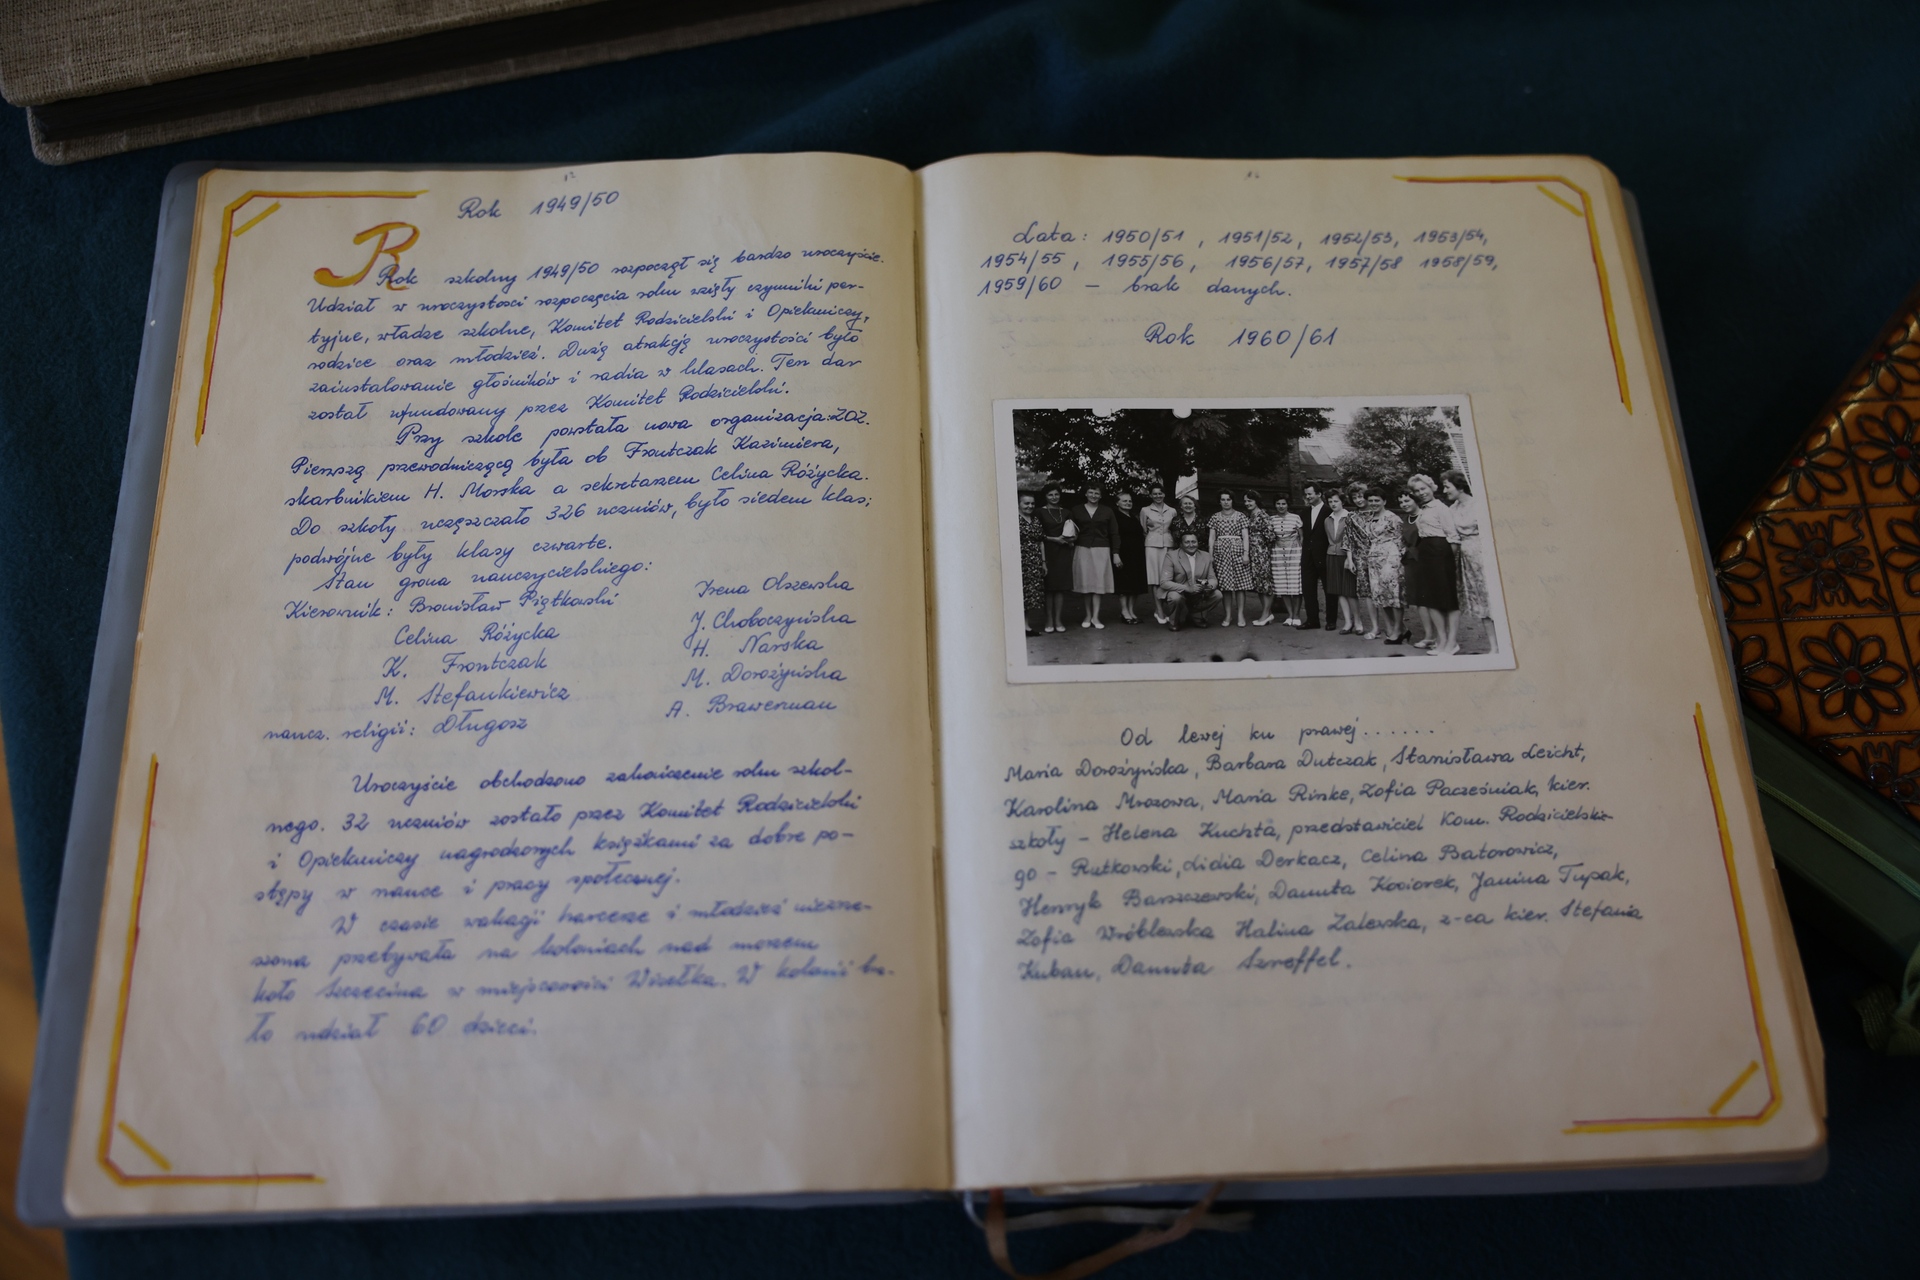 Rok 1949/50
Rok szkolny 1949/50 rozpoczął się bardzo uroczyście.
Udział w uroczystości rozpoczęcia roku wzięły czynniki par-
tyjne, władze szkolne, Komitet Rodzicielski i Opiekuńczy,
rodzice oraz młodzież. Dużą atrakcją uroczystości było
zainstalowanie głośników i radia w klasach. Ten dar
został ufundowany przez Komitet Rodzicielski.
Przy szkole powstała nowa organizacja: ZOZ.
Pierwszą przewodniczącą była ob Frontczak Kazimiera,
skarbnikiem H. Morska a sekretarzem Celina Różycka.
Do szkoły uczęszczało 326 uczniów, było siedem klas;
podwójne były klasy czwarte.
Stan grona nauczycielskiego:
Kierownik: Bronisław Piątkowski
Celina Różycka
K. Frontczak
M. Stefankiewicz
naucz. religii: Długosz
Irena Olszewska
J. Choboczyńska
H. Narska
M. Dorożyńska
A. Brawerman
Uroczyście obchodzono zakończenie roku szkol-
nego. 32 uczniów zostało przez Komitet Rodzicielski
i Opiekuńczy nagrodzonych książkami za dobre po-
stępy w nauce i pracy społecznej.
W czasie wakacji harcerze i młodzież niezrze-
szona przebywała na koloniach nad morzem
koło Szczecina w miejscowości Wisełka. W kolonii bra-
ło udział 60 dzieci.
Lata: 1950/51, 1951/52, 1952/53, 1953/54,
1954/55, 1955/56, 1956/57, 1957/58 1958/59,
1959/60 – brak danych.
Rok 1960/61
Od lewej ku prawej.......
Maria Dorożyńska, Barbara Dutczak, Stanisława Leicht,
Karolina Mrozowa, Maria Rinke, Zofia Pacześniak, kier.
szkoły – Helena Kuchta, przedstawiciel Kom. Rodzicielskie-
go – Rutkowski, Lidia Derkacz, Celina Batorowicz,
Henryk Barszczewski, Danuta Kosiorek, Janina Tupak,
Zofia Wróblewska Halina Zalewska, z-ca kier. Stefania
Kuban, Danuta Szreffel.